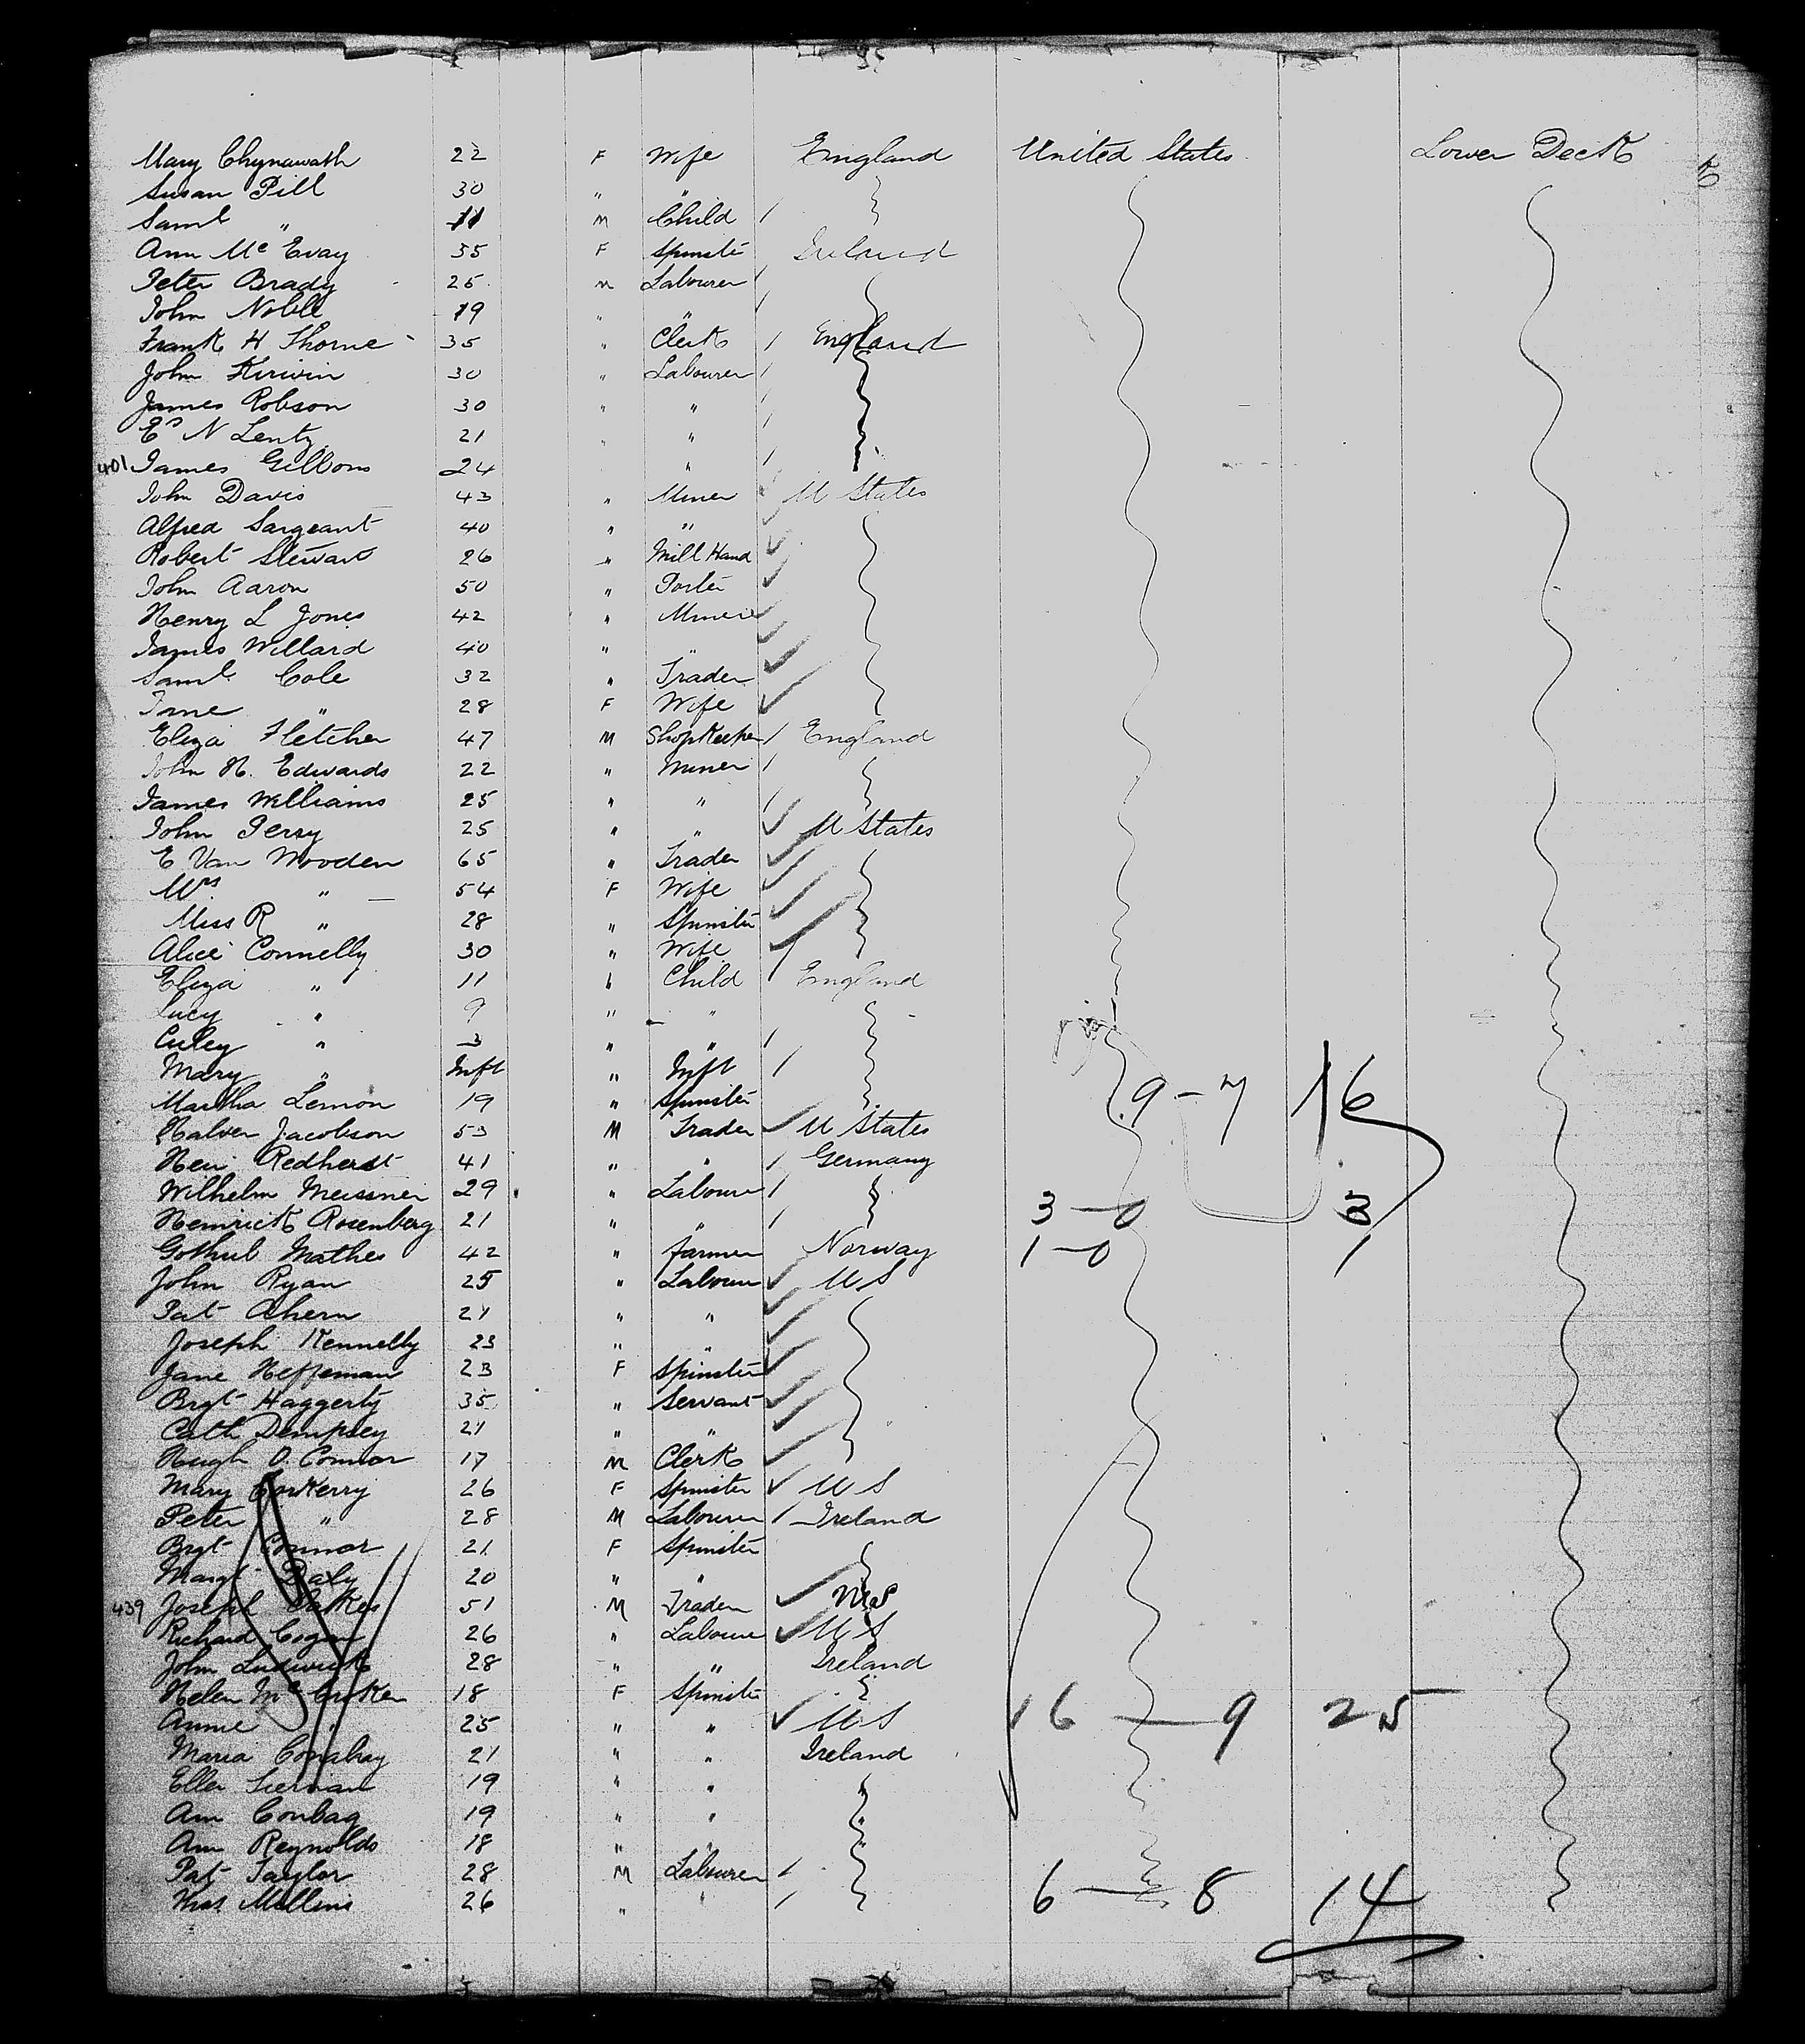 Mary Chynawath 22 F Wife England United States Lower Deck
Susan Pill 30 " "
Saml " 11 M Child /
Ann Mc Evay 35 F Spinster Ireland
Peter Brady 25 M Labourer /
John Noble 19 " " /
Frank H Thorne 35 " Clerk / England
John Kirwin 30 " Labourer /
James Robson 30 " " /
Ed N Lentz 21 " " /
401 James Gibbons 24 " /
John Davis 43 " Miner U States
Alfred Sargeant 40 " "
Robert Stewart 26 " Mill Hand
John Aaron 50 " Porter
Henry L Jones 42 " Miner
James Willard 40 " "
Saml Cole 32 " Trader
Jane " 28 F Wife
Eliza Fletcher 47 M Shopkeeper / England
John H. Edwards 22 " Miner /
James Williams 25 " " /
John Perry 25 " " U States
E Van Wooden 65 " Trader
Mrs " 54 F Wife
Miss R " 28 " Spinster
Alice Connelly 30 " Wife
Eliza " 11 " Child England
Lucy " 9 " "
" 3 " " /
Mary " Inft " Inft / 9 - 7 16
Martha Lemon 19 " Spinster
Halver Jacobson 53 M Trader U States
Redherst 41 " " / Germany
Wilhelm Meissner 29 " Labourer /
Heinrick Rosenberg 21 " " / 3 - 0 3
Mathes 42 " Farmer Norway 1 - 0 1
John Ryan 25 " Labourer U S
Pat Ahern 21 " "
Joseph Kennelly 23 " "
Jane Heffernan 23 F Spinster
Brgt Haggerty 35 " Servant
Cath Dempsey 21 " "
Hugh O. Connor 17 M Clerk
Mary Corkerry 26 F Spinster U S
Peter " 28 M Labourer / Ireland
Brgt Connor 21 F Spinster
Margt Daly 20 " "
439 Joseph Oakes 51 M Trader U S
Richard Cogan 26 " Labourer U S
John Ludwick 28 " " Ireland
Helen Mc 18 F Spinster
Annie 25 " " U S 16 - 9 25
Maria 21 " " Ireland
Ellen 19 " "
Ann 19 " "
Ann Reynolds 18 " "
Pat Taylor 28 M Labourer /
Thos Mullins 26 " " / 6 - 8 14